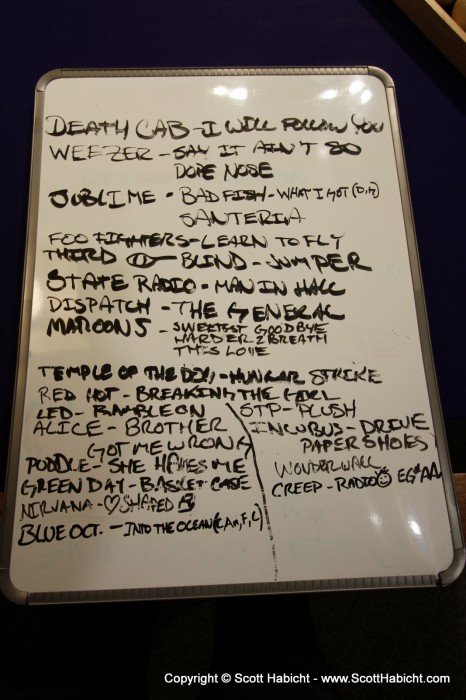 DEATH CAB - I WILL FOLLOW YOU
WEEZER - SAY IT AIN'T SO
DOPE NOSE
SUBLIME - BADFISH - WHAT I GOT (D,G)
SANTERIA
FOO FIGHTERS - LEARN TO FLY
THIRD BLIND - JUMPER
STATE RADIO - MAN IN HALL
DISPATCH - THE GENERAL
MAROON 5 - SWEETEST GOODBYE
HARDER 2 BREATH
THIS LOVE
TEMPLE OF THE DOG - HUNGAR STRIKE
RED HOT - BREAKING THE GIRL
LED - RAMBLE ON
ALICE - BROTHER
GOT ME WRONG
PUDDLE - SHE HATES ME
GREEN DAY - BASKET CASE
NIRVANA - ♡ SHAPED B
BLUE OCT. - INTO THE OCEAN (C, Am, F, C)
STP - PLUSH
INCUBUS - DRIVE
PAPER SHOES
WONDERWALL
CREEP - RADIO EG#AAm
Copyright © Scott Habicht - www.ScottHabicht.com